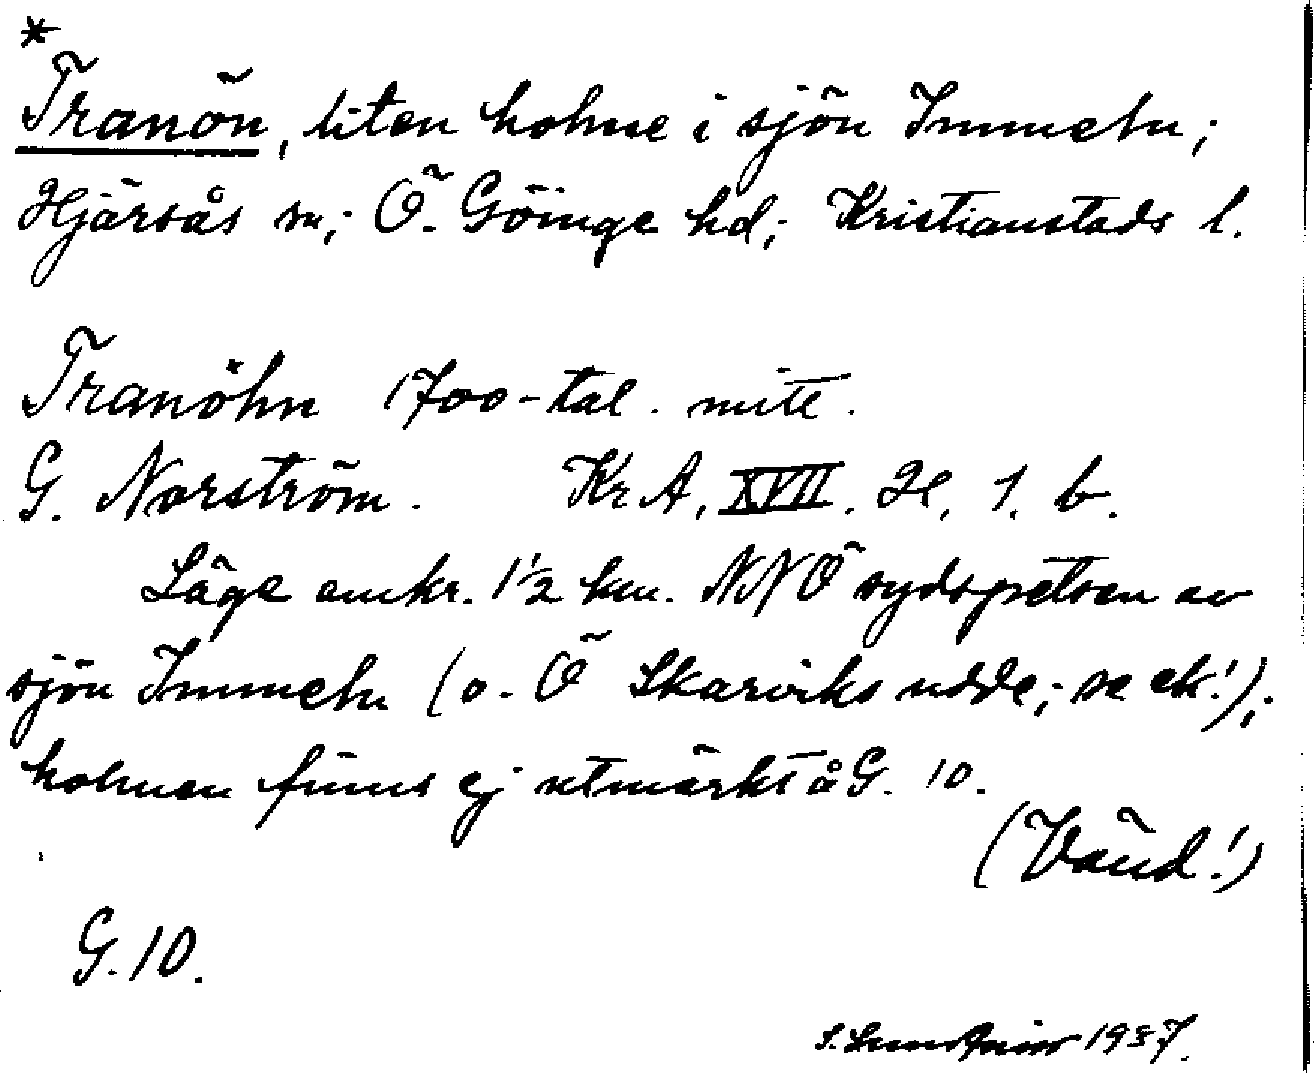 *
Tranön, liten holme i sjön Immeln;
Hjärsås sn; Ö. Göinge hd; Kristianstads l.
Tranöhn 1700-tal. mitt.
G. Norström. KrA, XVII. H. 1. b.
Läge omkr. 1½ km. NNÖ sydspetsen av
sjön Immeln (o. Ö Skarviks udde; se ek!);
holmen finns ej utmärkt å G. 10.
(Vänd!)
G. 10.
S. 1937.